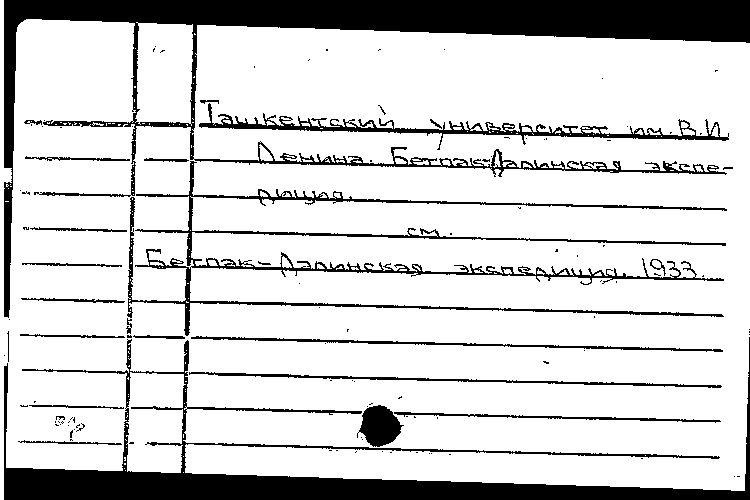 Ташкентский университет им. В.И.
Ленина. Бетпак-Далинская экспе-
диция.
см.
Бетпак-Далинская экспедиция. 1933.